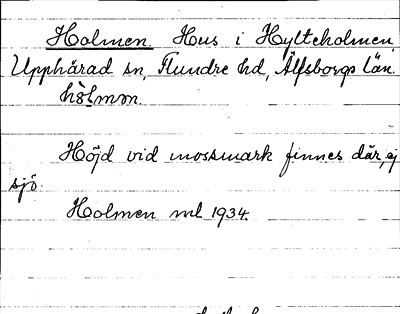 Holmen. Hus i Hylteholmen,
Upphärad sn, Flundre hd, Älfsborgs län.
hòlmən.
Höjd vid mossmark finnes där, ej
sjö.
Holmen ml 1934.